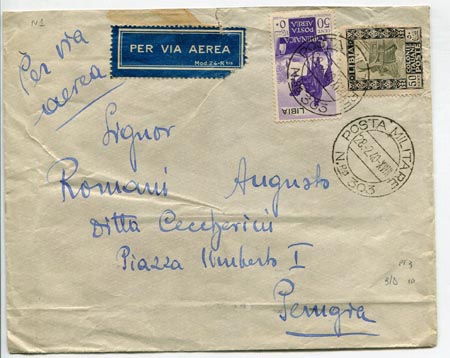 N1
Per via
aerea
PER VIA AEREA
Mod. 24-R bis
50
POSTA
AEREA
LIBIA
LIBIA
50
POSTA MILITARE
28.2.40.XVIII
N. 303
Signor
Romani Augusto
Ditta Ceccherini
Piazza Umberto I
Perugia